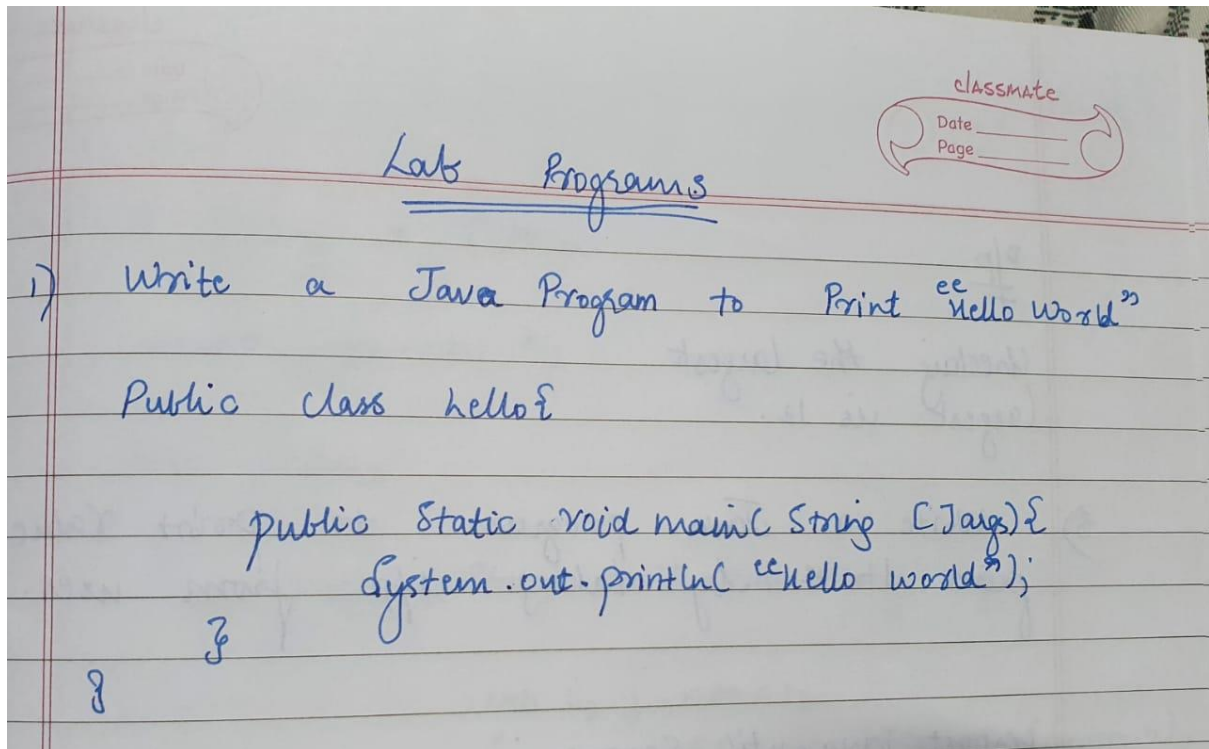 classmate
Date
Page
Lab Programs
1) Write a Java Program to Print "Hello World"
Public class hello{
public static void main( String []args){
System.out.println( "Hello world");
}
}